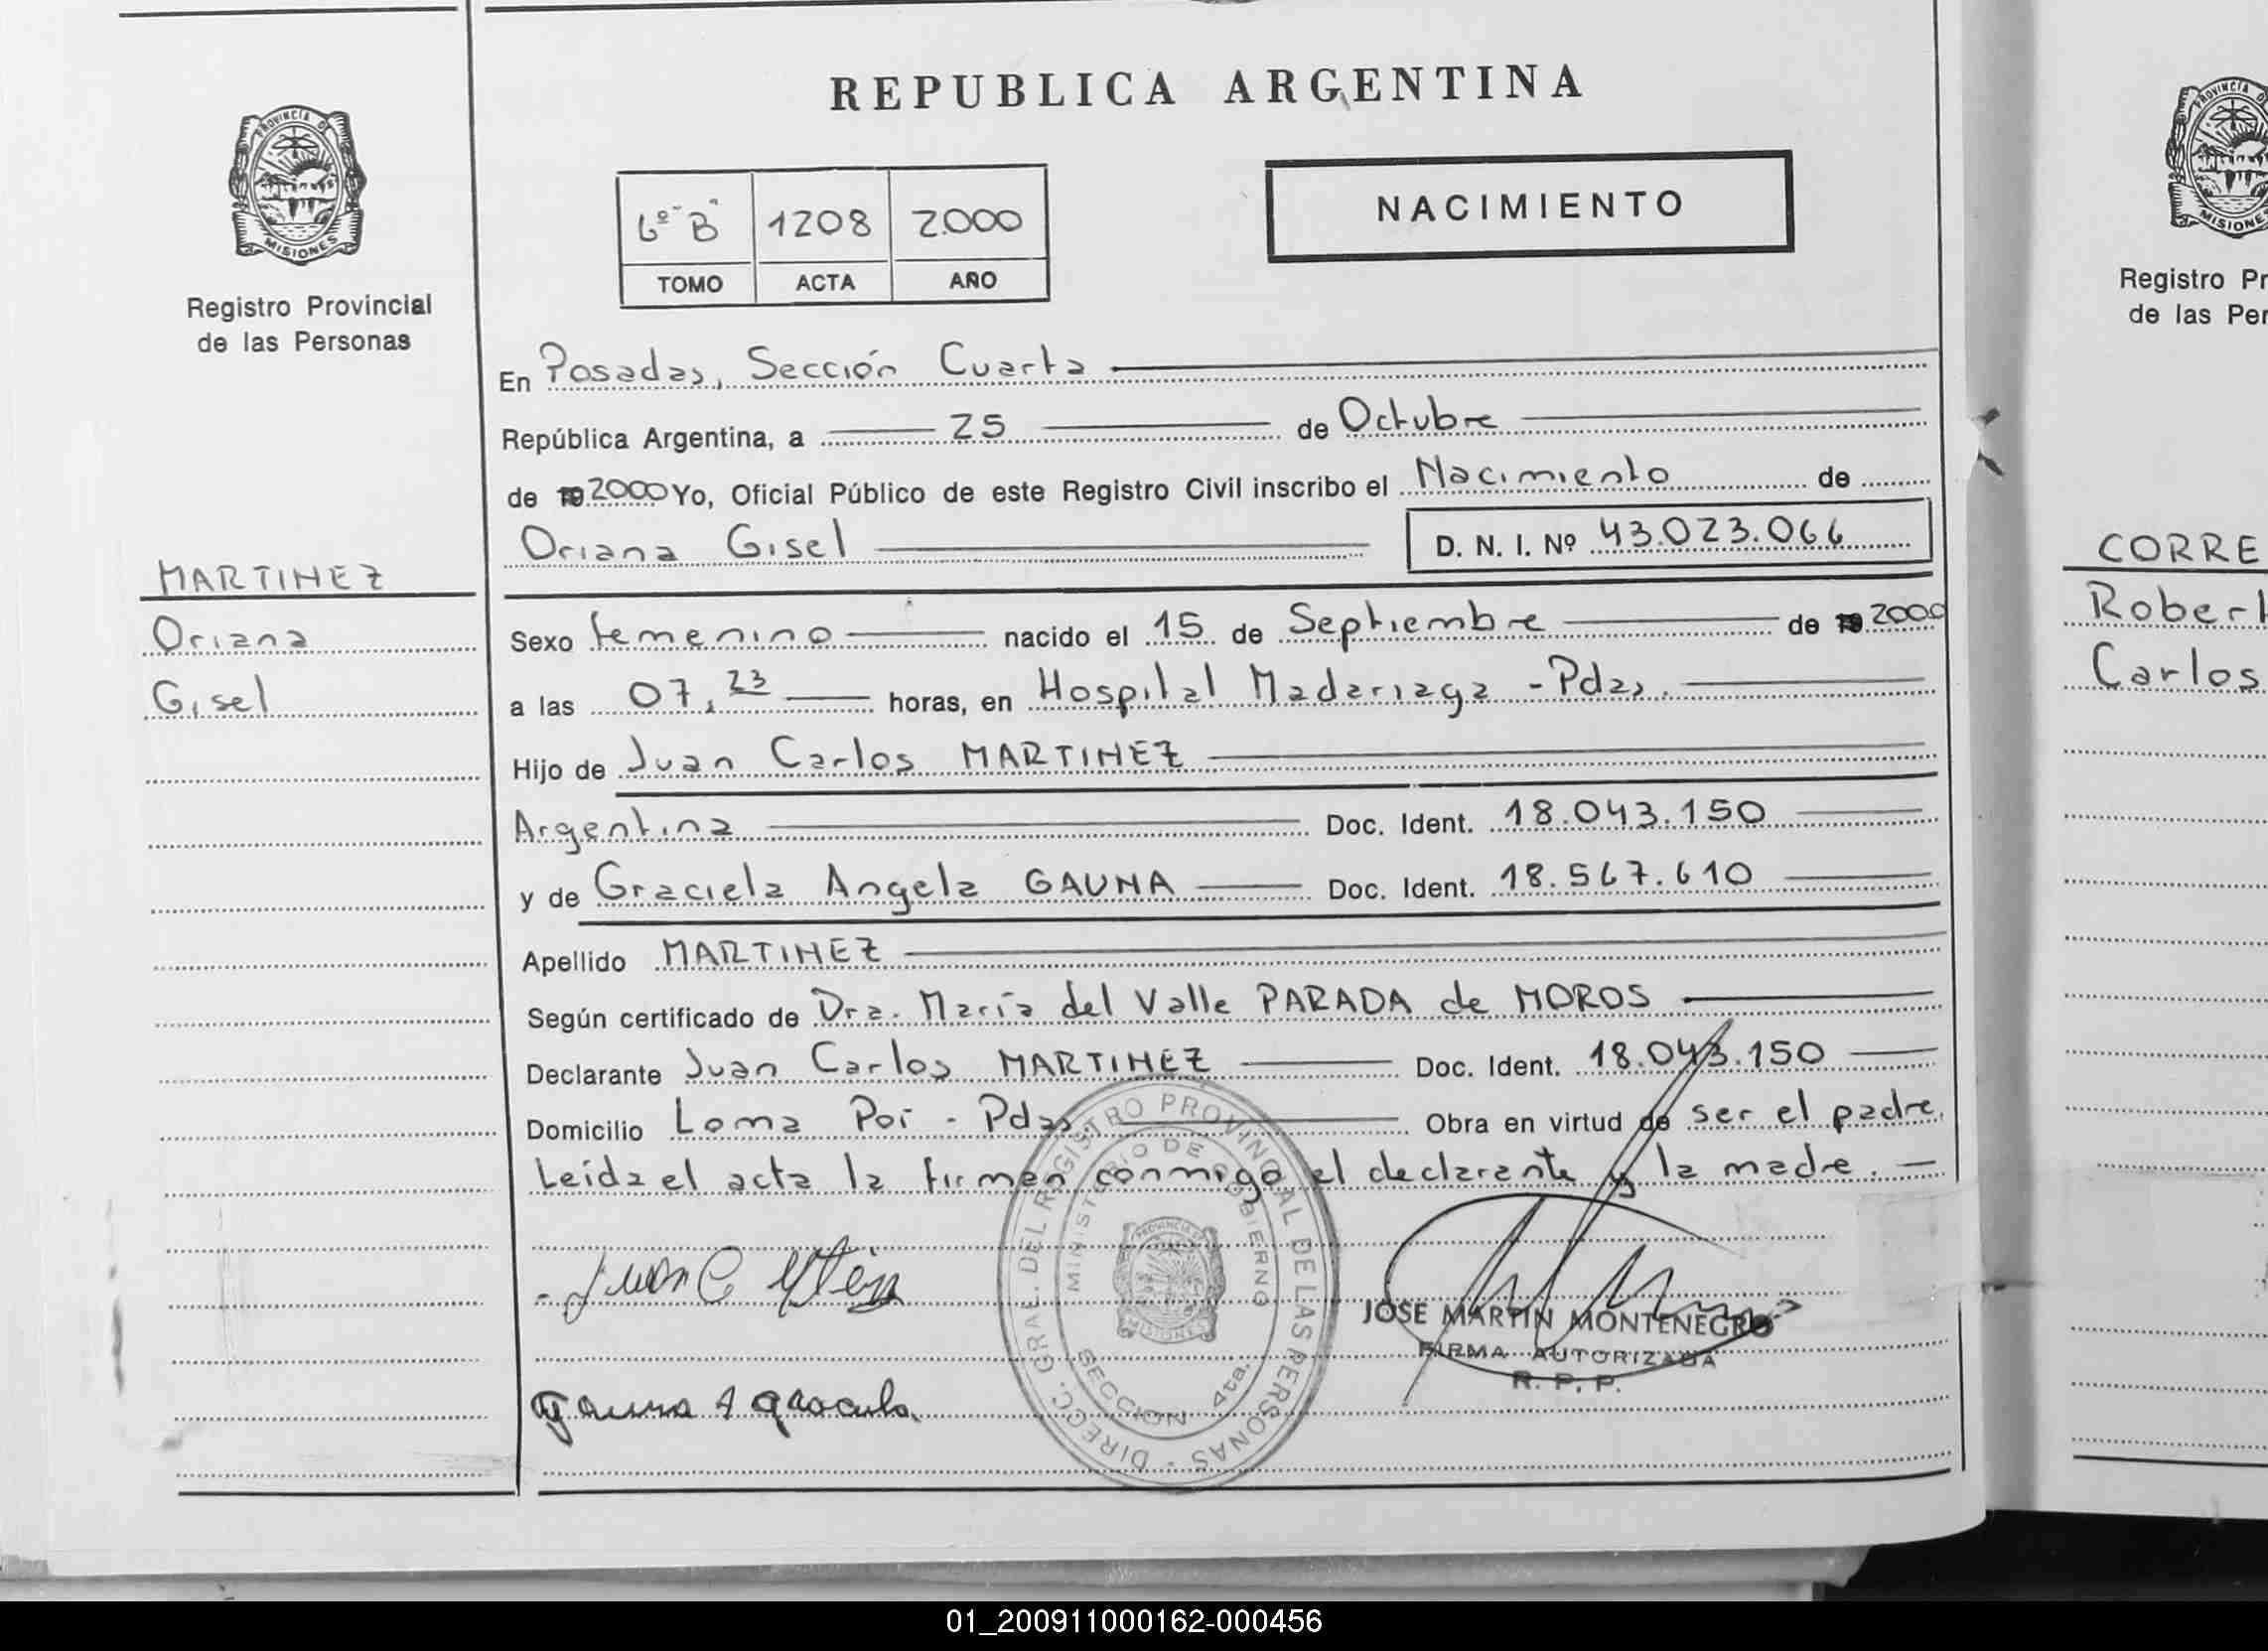 REPUBLICA ARGENTINA
PROVINCIA DE
MISIONES
Registro Provincial
de las Personas
6º "B" 1208 2000
TOMO ACTA AÑO
NACIMIENTO
En Posadas, Sección Cuarta
República Argentina, a 25 de Octubre
de 19 2000 Yo, Oficial Público de este Registro Civil inscribo el Nacimiento de
Oriana Gisel D. N. I. Nº 43.023.066
MARTINEZ
Oriana
Gisel
Sexo femenino nacido el 15 de Septiembre de 19 2000
a las 07,23 horas, en Hospital Madariaga - Pdas.
Hijo de Juan Carlos MARTINEZ
Argentina Doc. Ident. 18.043.150
y de Graciela Angela GAUNA Doc. Ident. 18.567.610
Apellido MARTINEZ
Según certificado de Dra. María del Valle PARADA de MOROS
Declarante Juan Carlos MARTINEZ Doc. Ident. 18.043.150
Domicilio Loma Poi - Pdas. Obra en virtud de ser el padre.
Leída el acta la firman conmigo el declarante y la madre.
Juan C
Gauna A
DIRECC. GRAL. DEL REGISTRO PROVINCIAL DE LAS PERSONAS -
MINISTERIO DE GOBIERNO
PROVINCIA DE
MISIONES
SECCION 4ta.
JOSE MARTIN MONTENEGRO
FIRMA AUTORIZADA
R. P. P.
MISION
Registro Pr
de las Per
CORRE
Robert
Carlos
01_200911000162-000456